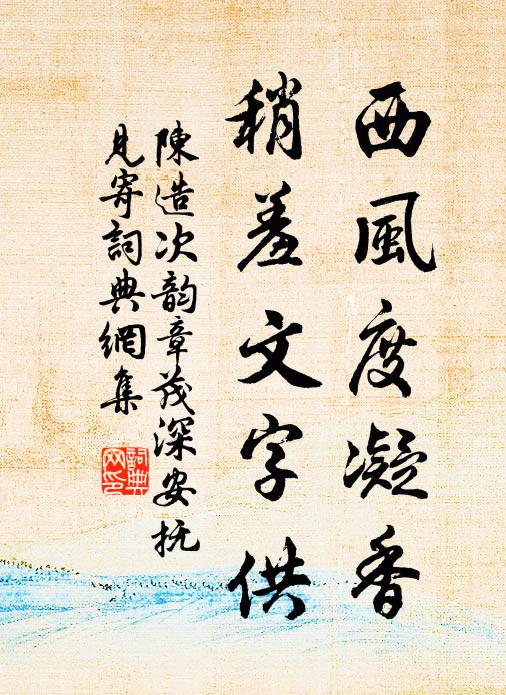 西風度凝香
稍羞文字供
陳造次韵章茂深安抚
見寄詞典網集
詞典网印